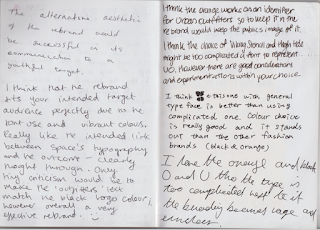 The alternative aesthetic
of the rebrand would
be successful in its
communication to a
youthful target.
I think that the rebrand
fits your intended target
audience perfectly due to the
font use and vibrant colours.
Really like the intended link
between Space's typography
and the outcome - clearly
thought through. Only
tiny criticism would be to
make the 'outfitters' text
match the black logo colour,
however overall a very
effective rebrand. :)
I think the orange works as an identifier
for Urban outfitters so to keep it in the
rebrand would keep the publics image of it.
I think the choice of Viking Stencil and High tide
might be too complicated of font to represent
UO. However there are good considerations
and experimentations within your choice.
I think this one with general
type face is better than using
complicated one. Colour choice
is really good and it stands
out than the other fashion
brands (black & orange)
I love the orange and black
O and U tho the type is
too complicated next to it
the branding becomes vague and
unclear.